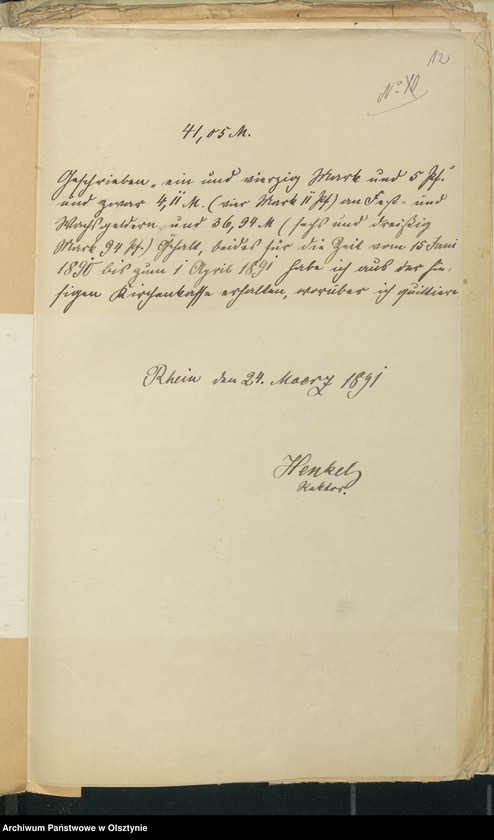 12
No 10
41,05 M.
Geschrieben, ein und vierzig Mark und 5 Pf.
und zwar 4,11 M. (vier Mark 11 Pf) an Fest- und
Wachsgeldern und 36,94 M (sechs und dreißig
Mark 94 Pf.) Gehalt, beides für die Zeit vom 15 Juni
1890 bis zum 1 April 1891 habe ich aus der hie-
sigen Kirchenkasse erhalten, worüber ich quittiere
Rhein den 24. Maerz 1891
Henkel
Rektor.
Archiwum Państwowe w Olsztynie